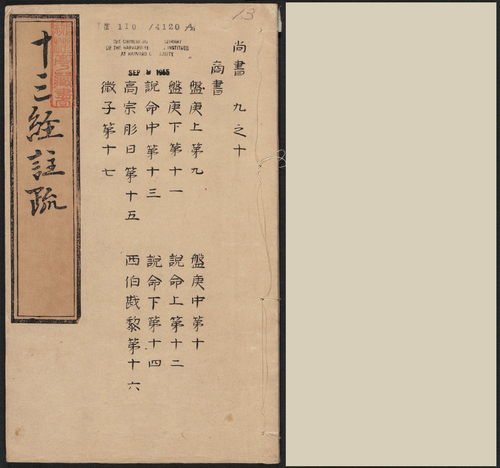 13
110
4120
SEP 1955
尚書 九之十
商書
盤庚上第九 盤庚中第十
盤庚下第十一 說命上第十二
說命中第十三 說命下第十四
高宗肜日第十五 西伯戡黎第十六
微子第十七
十三經註疏